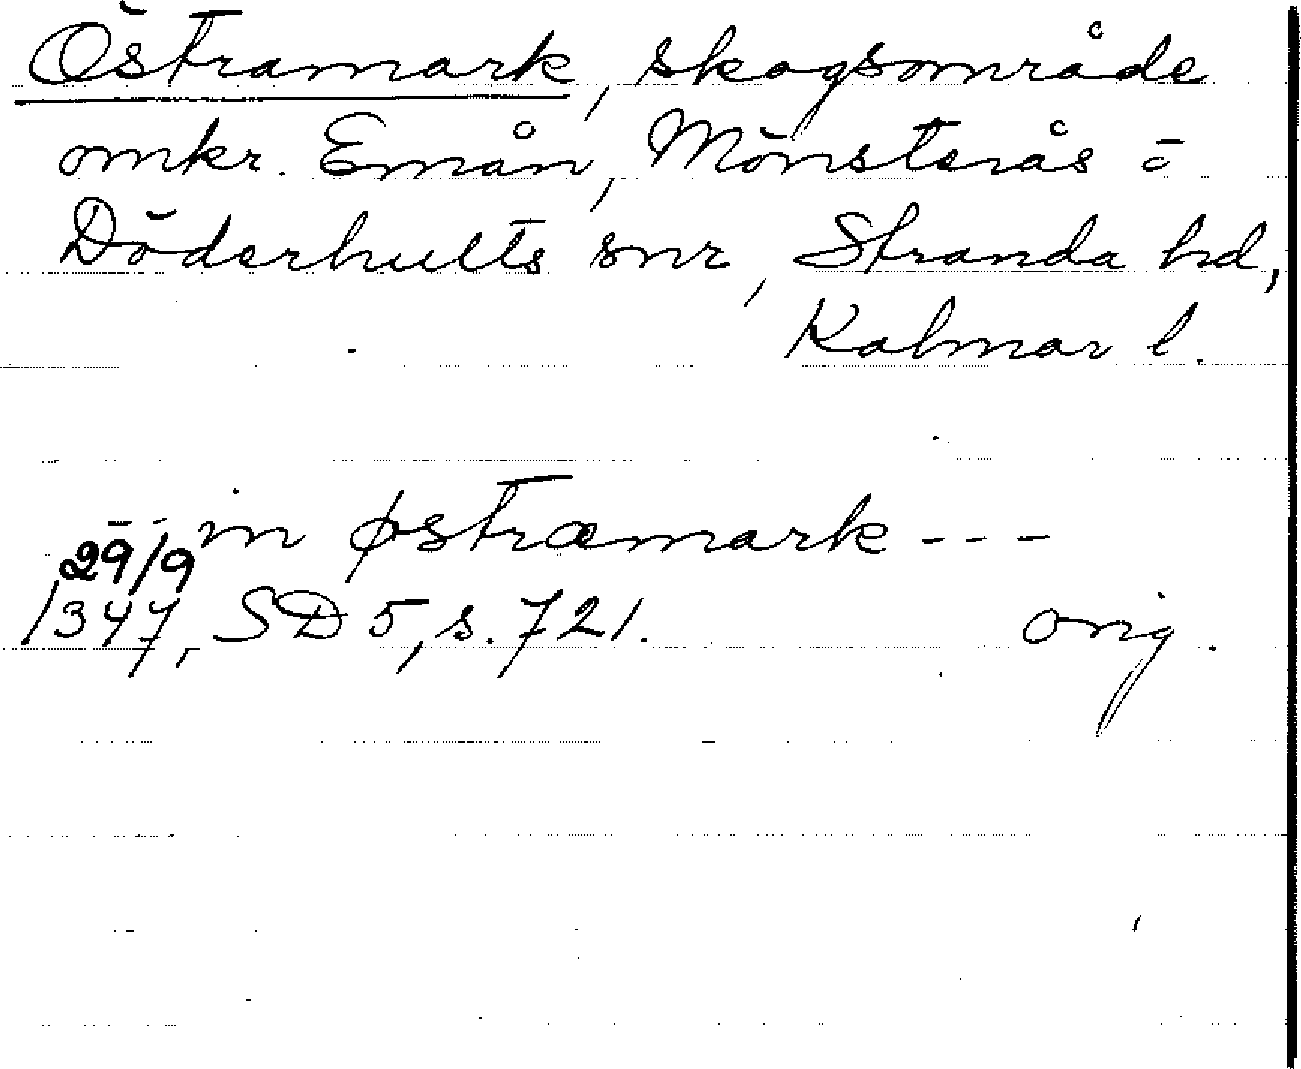 Östramark, skogsområde
omkr. Emån, Mönsterås o
Döderhults snr, Stranda hd,
Kalmar l.
-- in østræmark ---
29/9
1347, SD 5, s. 721. orig.